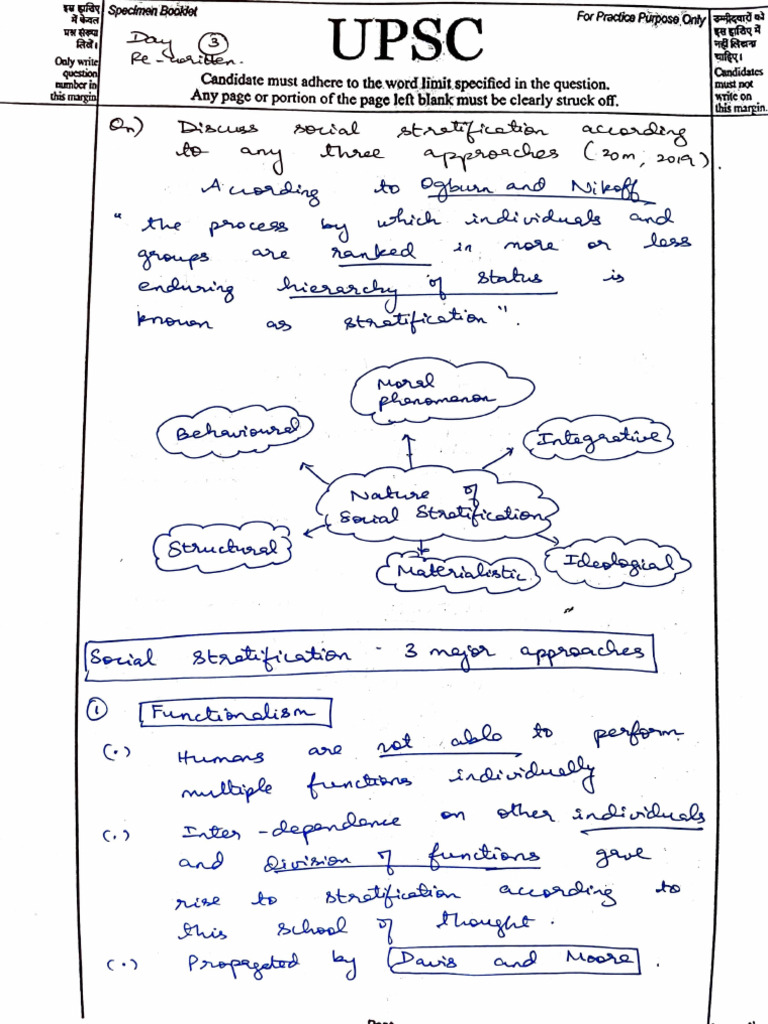 इस हाशिए
में केवल
प्रश्न संख्या
लिखें।
Only write
question
number in
this margin
Specimen Booklet
For Practice Purpose Only
UPSC
Candidate must adhere to the word limit specified in the question.
Any page or portion of the page left blank must be clearly struck off.
उम्मीदवारों को
इस हाशिए में
नहीं लिखना
चाहिए।
Candidates
must not
write on
this margin.
Day 3
Re-written.
Qn) Discuss social stratification according
to any three approaches (20m, 2019).
According to Ogburn and Nikoff
"the process by which individuals and
groups are ranked in more or less
enduring hierarchy of status is
known as stratification".
Moral
phenomenon
Behavioural
Integrative
Nature of
Social Stratification
Structural
Materialistic
Ideological
Social stratification - 3 major approaches
1 Functionalism
(•) Humans are not able to perform
multiple functions individually
(•) Inter-dependence on other individuals
and division of functions gave
rise to stratification according to
this school of thought.
(•) Propagated by Davis and Moore.